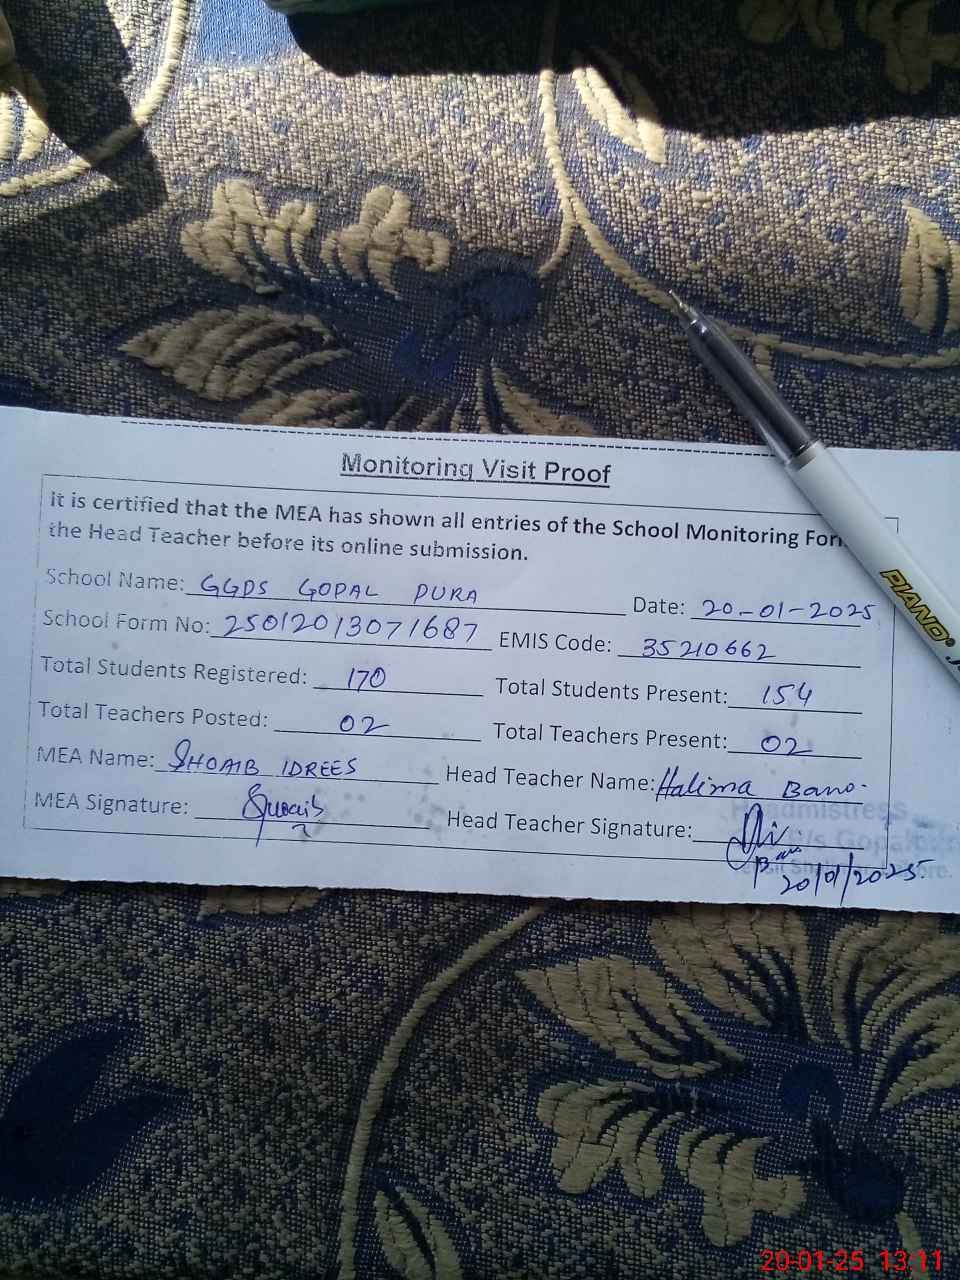 Monitoring Visit Proof
It is certified that the MEA has shown all entries of the School Monitoring Form
the Head Teacher before its online submission.
School Name: GGPS GOPAL PURA Date: 20-01-2025
School Form No: 25012013071687 EMIS Code: 35210662
Total Students Registered: 170 Total Students Present: 154
Total Teachers Posted: 02 Total Teachers Present: 02
MEA Name: SHOAIB IDREES Head Teacher Name: Halima Bano.
MEA Signature: Shoaib Head Teacher Signature:
Headmistress
20/01/2025
PIANO
20-01-25 13:11